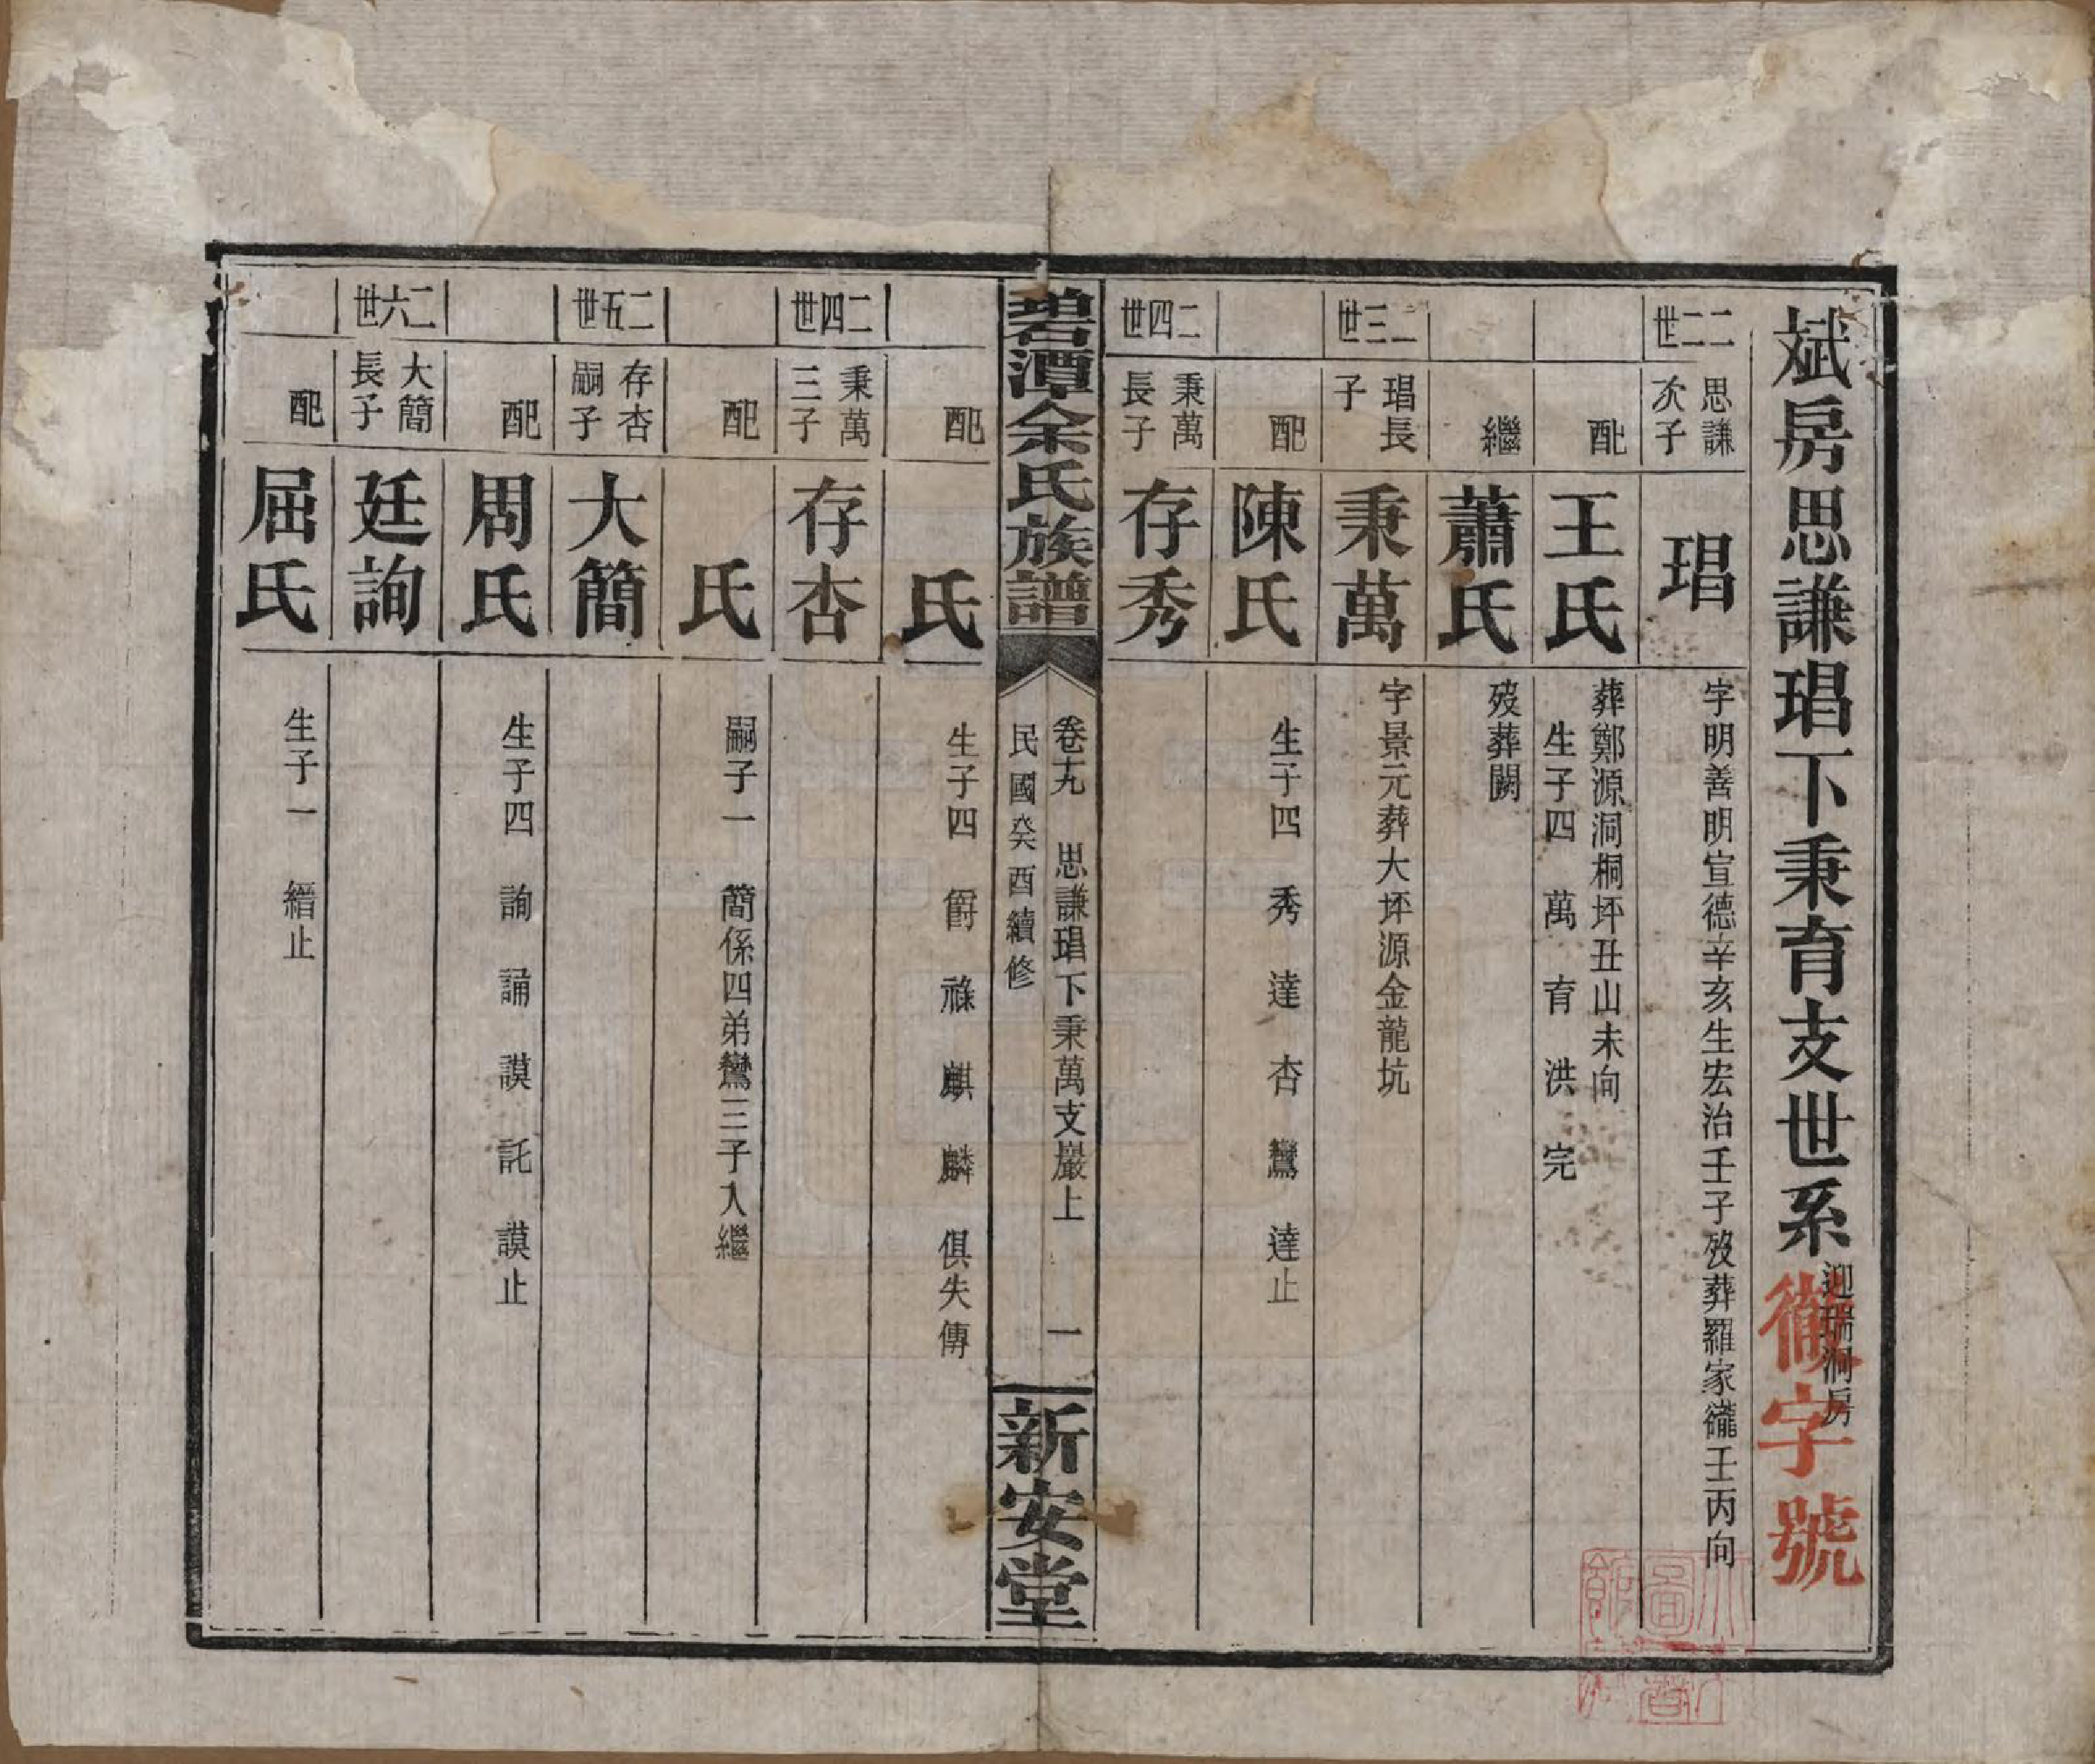 斌房思謙琩下秉育支世系 迎瑞洞房
徽字號
二二世 思謙次子 琩 字明善明宣德辛亥生宏治壬子歿葬羅家𡾋壬丙向
配 王氏 葬鄭源洞桐坪丑山未向
生子四 萬 育 洪 完
繼 蕭氏 歿葬闕
二三世 琩長子 秉萬 字景元葬大坪源金龍坑
配 陳氏 生子四 秀 達 杏 鸞 達止
二四世 秉萬長子 存秀
碧潭余氏族譜
卷十九 思謙琩下秉萬支巖上 一
民國癸酉續修
新安堂
配 氏 生子四 爵 祿 麒 麟 俱失傳
二四世 秉萬三子 存杏
配 氏 嗣子一 簡係四弟鸞三子入繼
二五世 存杏嗣子 大簡
配 周氏 生子四 詢 誦 謨 託 謨止
二六世 大簡長子 廷詢
配 屈氏 生子一 縉止